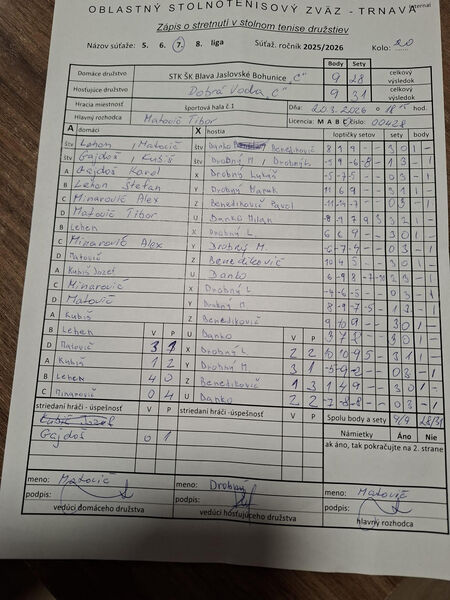 OBLASTNÝ STOLNOTENISOVÝ ZVÄZ - TRNAVA
Zápis o stretnutí v stolnom tenise družstiev
Názov súťaže: 5. 6. 7. 8. liga Súťaž. ročník 2025/2026 Kolo: 20
Body Sety
Domáce družstvo STK ŠK Blava Jaslovské Bohunice "C" 9 28 celkový výsledok
Hosťujúce družstvo Dobrá Voda "C" 9 31 celkový výsledok
Hracia miestnosť športová hala č.1 Dňa: 20.3.2026 o 18 hod.
Hlavný rozhodca Matovič Tibor Licencia: M A B C číslo: 00428
A domáci X hostia loptičky setov sety body
štv Lehen, Matovič štv Danko Benedikovič 8 1 9 - - 3 0 1 -
štv Gajdoš / Kubiš štv Drobný M / Drobný L 1 3 - 1
A Gajdoš Karol X Drobný Lukáš -5 -7 -5 - - 0 3 - 1
B Lehen Štefan Y Drobný Marek 3 1 1 -
C Minarovič Alex Z Benedikovič Pavol 0 3 - 1
D Matovič Tibor U Danko Milan 3 2 1 -
B Lehen X Drobný L. 6 6 9 - - 3 0 1 -
C Minarovič Alex Y Drobný M. -6 -7 -9 - - 0 3 - 1
D Matovič Z Benedikovič 10 4 5 - - 3 0 1 -
A Kubiš Jozef U Danko 2 3 - 1
C Minarovič X Drobný L -4 -6 -5 - - 0 3 - 1
D Matovič Y Drobný M 8 -9 -7 -5 - 1 3 - 1
A Kubiš Z Benedikovič 9 10 9 - - 3 0 1 -
B Lehen V P U Danko V P 3 7 3 - - 3 0 1 -
D Matovič 3 1 X Drobný L. 2 2 10 10 -9 5 - 3 1 1 -
A Kubiš 1 2 Y Drobný M. 3 1 -5 -9 -2 - - 0 3 - 1
B Lehen 4 0 Z Benedikovič 1 3 1 4 9 - - 3 0 1 -
C Minarovič 0 4 U Danko 2 2 -7 -3 -8 - - 0 3 - 1
striedaní hráči - úspešnosť V P striedaní hráči - úspešnosť V P Spolu body a sety 9/9 28/31
Kubiš Jozef Námietky Áno Nie
Gajdoš 0 1 ak áno, tak pokračujte na 2. strane
meno: Matovič meno: Drobný meno: Matovič
podpis: podpis: podpis:
vedúci domáceho družstva vedúci hosťujúceho družstva hlavný rozhodca